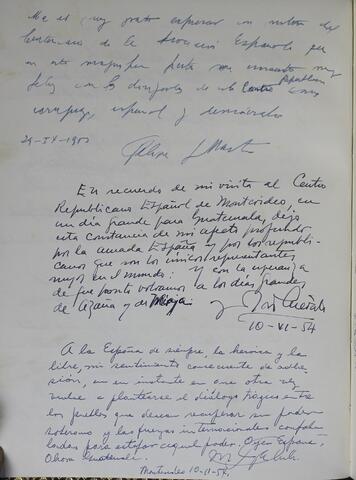 Me es muy grato expresar con motivo del
Centenario de la Asociación Española que
en esta magnífica fiesta me encuentro muy
feliz con los de este Centro Republicano
español y
29-IX-1953
Felipe
En recuerdo de mi visita al Centro
Republicano Español de Montevideo, en
un día grande para Guatemala, dejo
esta constancia de mi afecto profundo
por la amada España y por los republi-
canos que son los únicos representantes
suyos en el mundo: Y con la esperanza
de que pronto volvamos a los días grandes
de Azaña y de Miaja.
10-VI-54
A la España de siempre, la heroica y la
libre, mi sentimiento consecuente de adhe-
sión, en un instante en que otra vez
vuelve a plantearse el diálogo trágico entre
los pueblos que desean recuperar su poder
soberano y las fuerzas internacionales confabu-
ladas para estafar aquel poder. Ayer España,
Ahora Guatemala.
Montevideo 10-11-54.